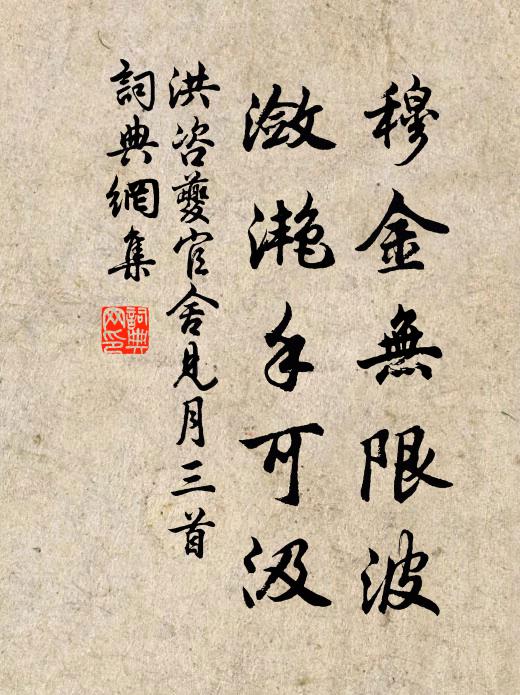 穆金無限波
瀲灧手可汲
洪咨夔官舍見月三首
詞典網集
詞典网印